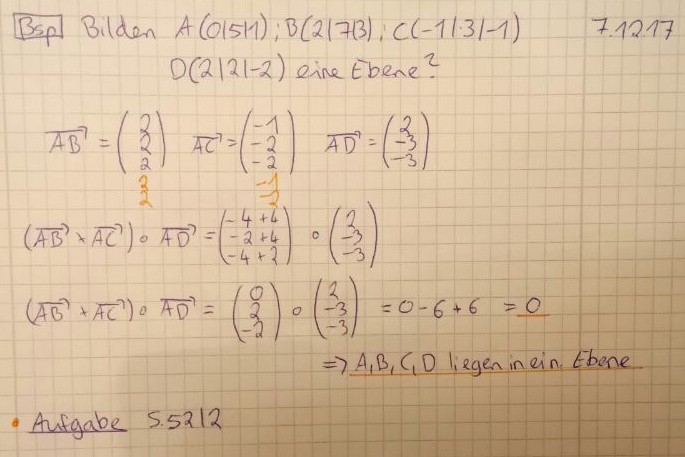 Bsp Bilden A(0|5|1); B(2|7|3); C(-1|3|-1) 7.12.17
D(2|2|-2) eine Ebene?
AB = (2 2 2) AC = (-1 -2 -2) AD = (2 -3 -3)
2 -1
2 -2
2
(AB × AC) ∘ AD = (-4+4 -2+4 -4+2) ∘ (2 -3 -3)
(AB × AC) ∘ AD = (0 2 -2) ∘ (2 -3 -3) = 0-6+6 = 0
=> A,B,C,D liegen in ein. Ebene
• Aufgabe S.52|2